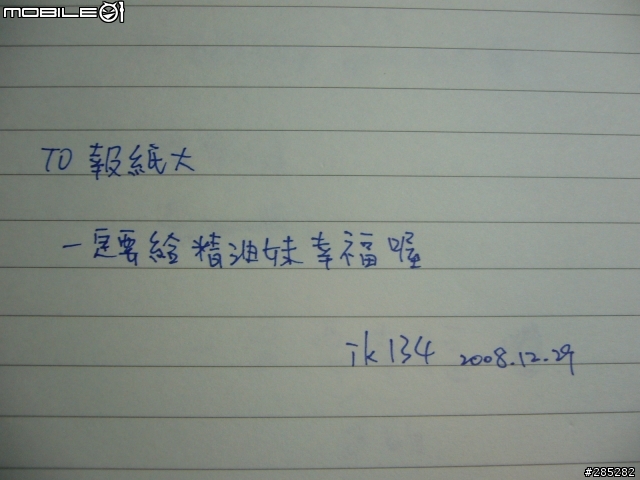 MOBILE01
TO 報紙大
一定要給精油妹幸福喔
ik134 2008.12.29
#285282